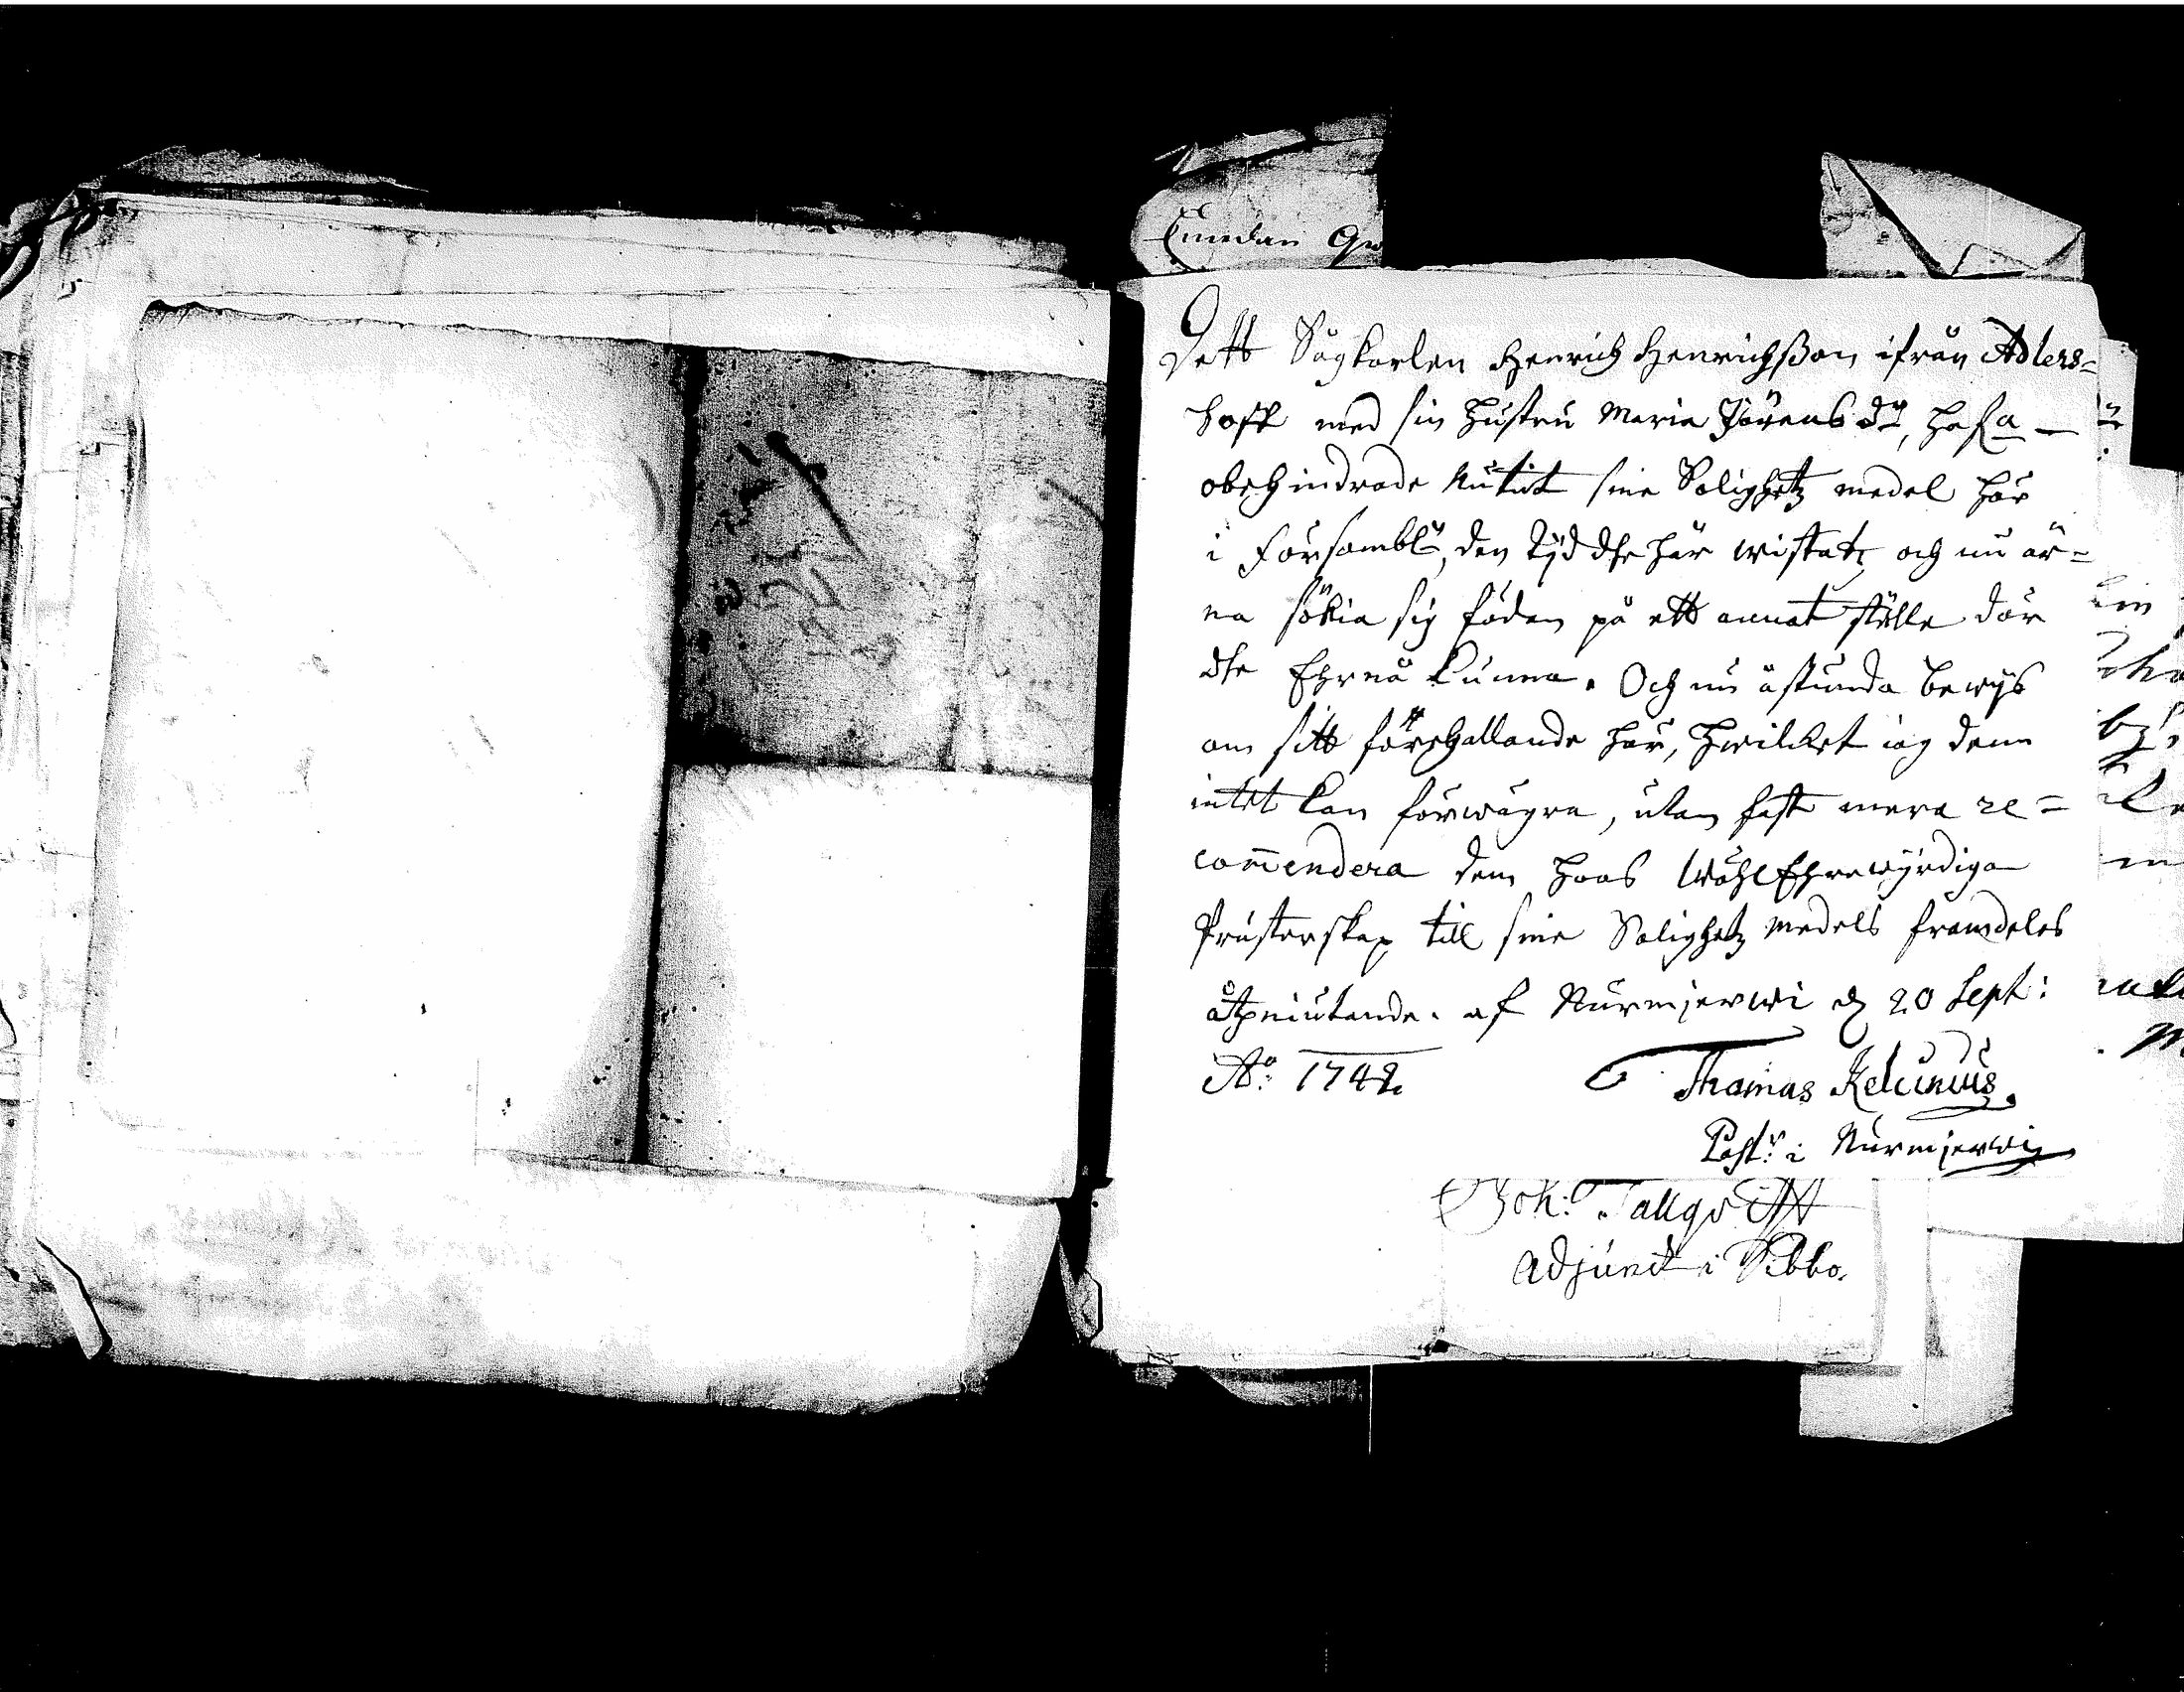 Emedan
Dett Sågkarlen Henrich Henrichßon ifrån Adlers=
hoff med sin Hustru Maria Jörens dr, hafa
obehindrade nutit sine Salighetz medel här
i Försambl, den tijd dhe här wistatz och nu är=
na sökia sig föden på ett annat ställe där
dhe Ehrnå kunna. Och nu åstunda bewijs
om sitt förehallande här, Hwilcket iag dem
intet kan förwägra, utan fast mera re=
com̄endera dem hoos WählEhrewyrdiga
Prästerskap till sine Salighetz medels framdeles
åtniutande. af Nurmjerwi d 20 Sept:
Ao: 1742
Thomas Kelunius
Past: i Nurmjerwi
Joh: Tallqvist
Adjunct i Sibbo.